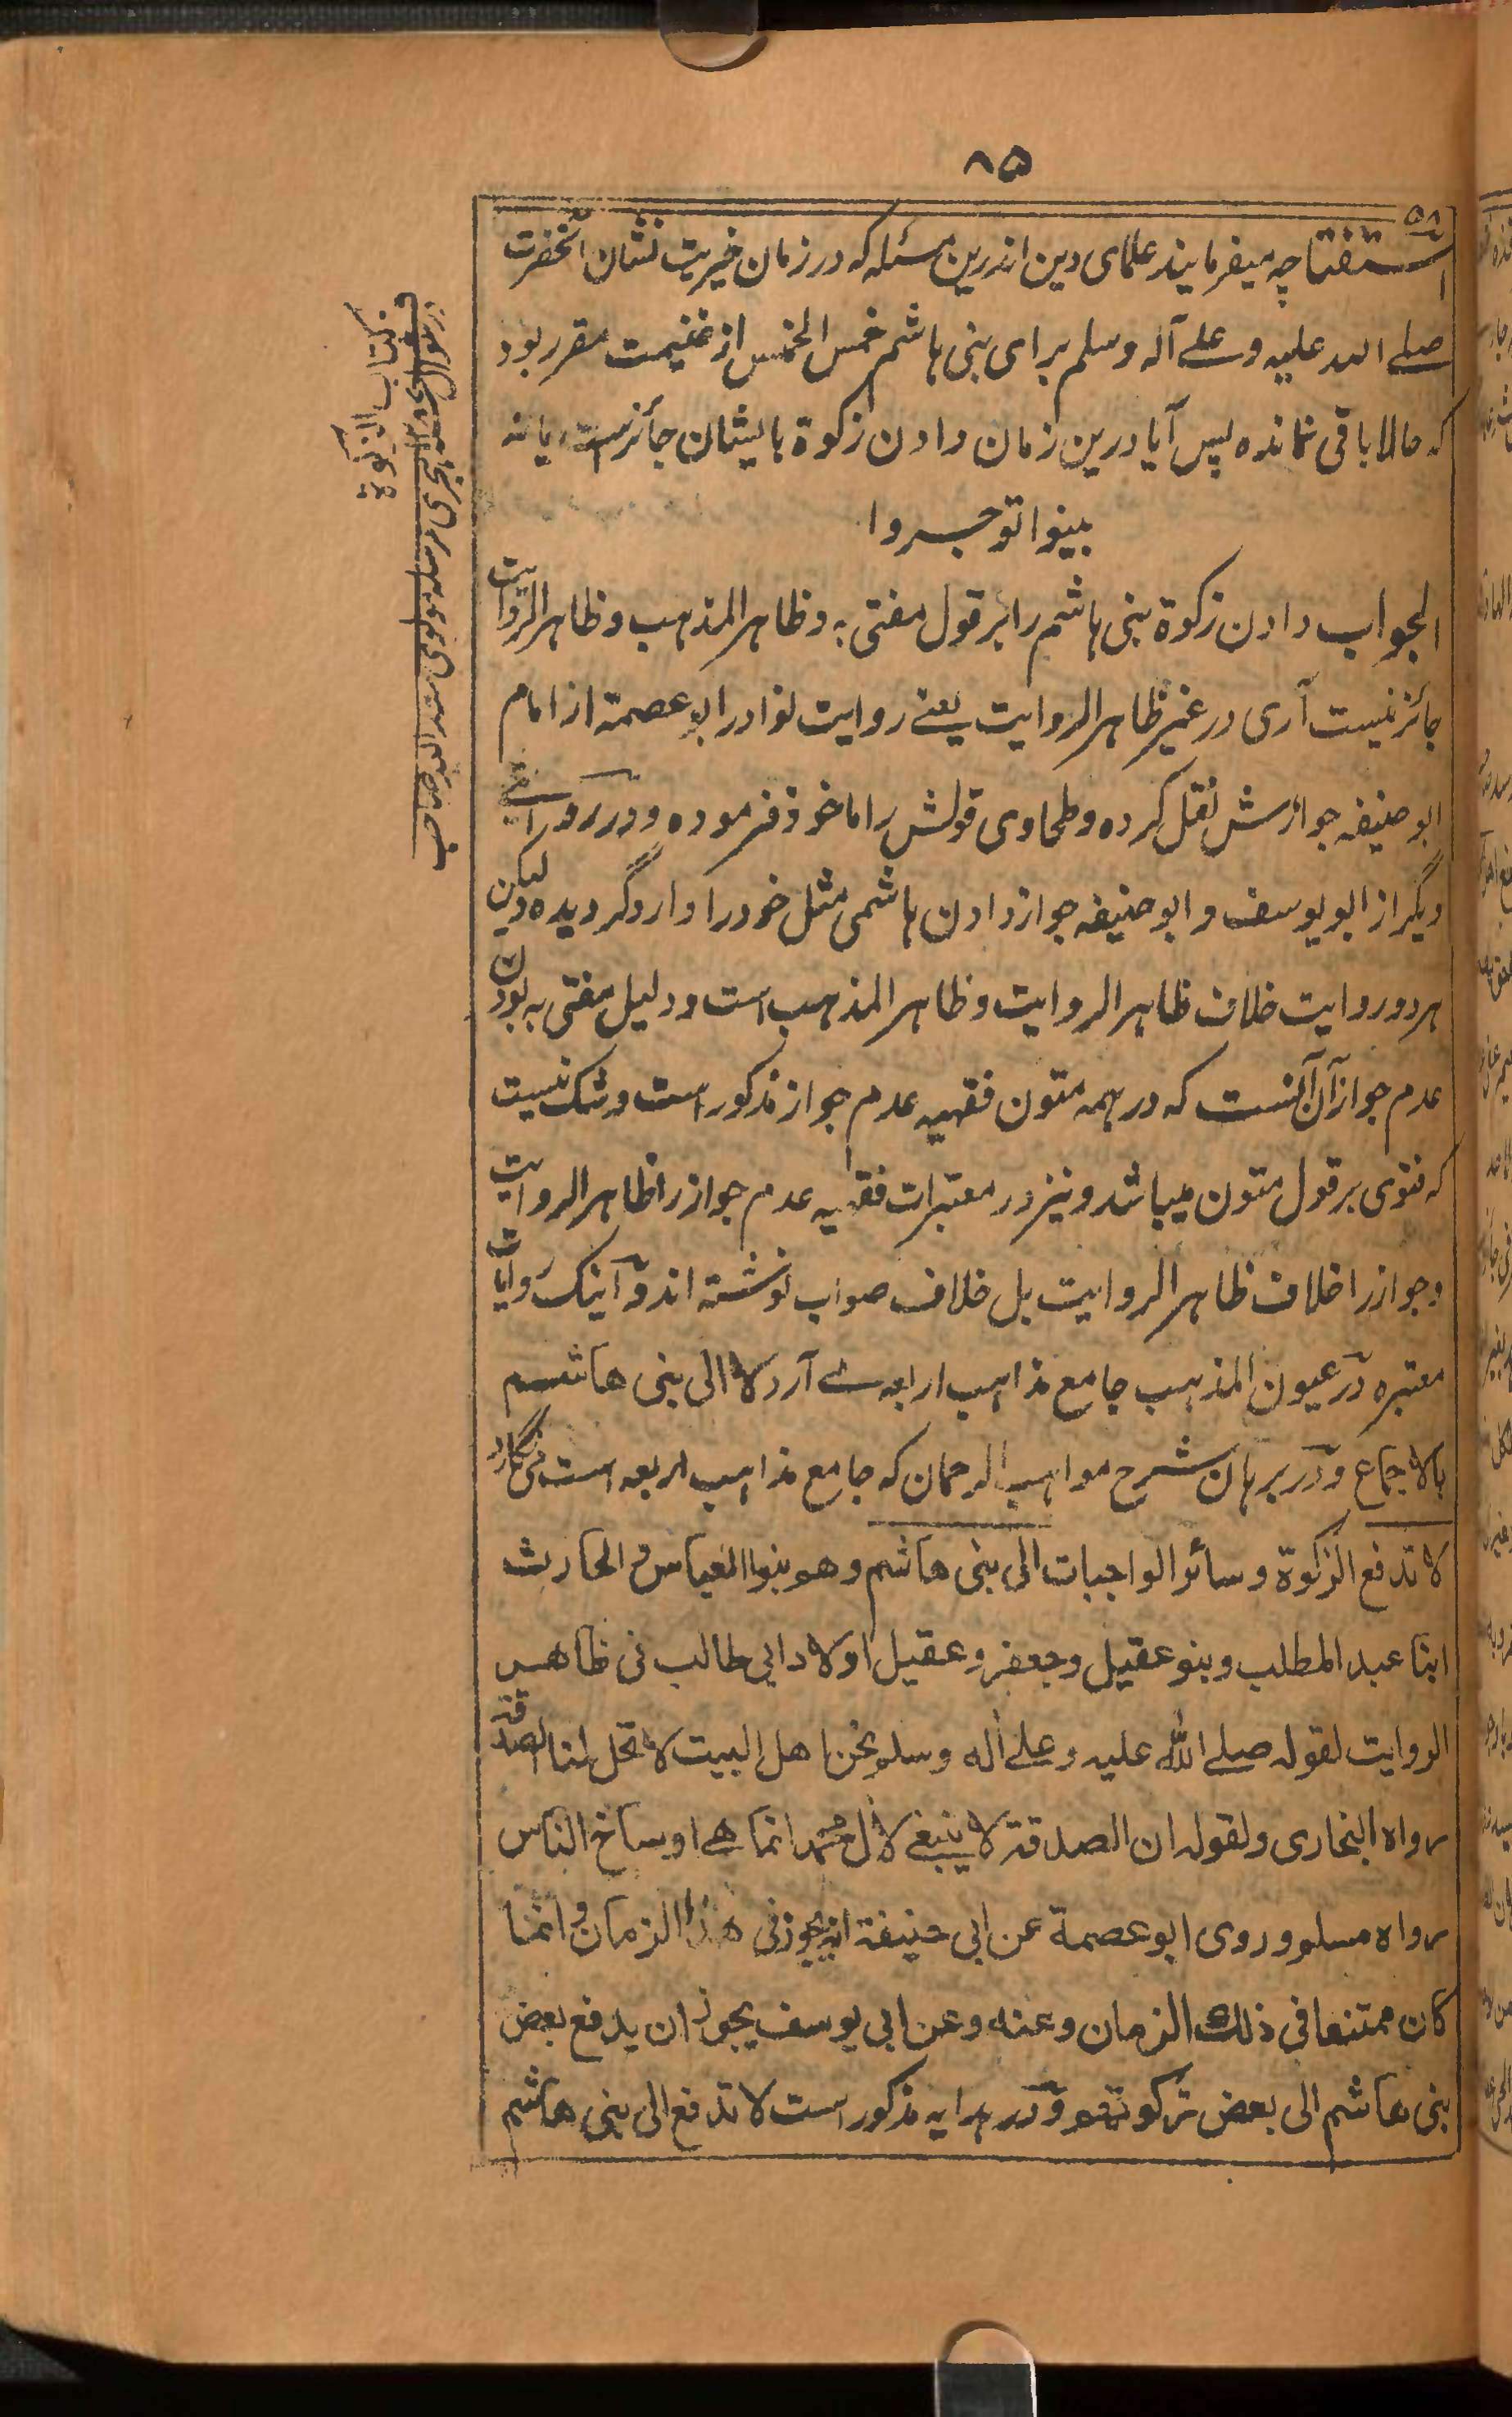 ۸۵
۵۸
استفتا چه میفرمایند علمای دین اندرین مسئله که در زمان خیریت نشان آنحضرت
صلے الله علیه وعلے آله وسلم برای بنی هاشم خمس الخمس از غنیمت مقرر بود
که حالا باقی نمانده پس آیا درین زمان دادن زکوة بایشان جائزست یا نه
بینوا توجروا
الجواب دادن زکوة بنی هاشم را بر قول مفتی به وظاهر المذهب وظاهر الروایت
جائز نیست آری در غیر ظاهر الروایت یعنے روایت نوادر ابو عصمة از امام
ابو حنیفه جوازش نقل کرده وطحاوی قولش را ماخوذ فرموده ودر روایتے
دیگر از ابو یوسف و ابو حنیفه جواز دادن هاشمی مثل خود را وارد گردیده لیکن این
هر دو روایت خلاف ظاهر الروایت وظاهر المذهب است ودلیل مفتی به بودن
عدم جواز آن آنست که در همه متون فقهیه عدم جواز مذکور است وشک نیست
که فتوی بر قول متون میباشد ونیز در معتبرات فقهیه عدم جواز را ظاهر الروایت
وجواز را خلاف ظاهر الروایت بل خلاف صواب نوشته اند و آینک روایات
معتبره در عیون المذهب جامع مذاهب اربعه مے آرد لا الی بنی هاشم
بالاجماع و در برهان شرح مواهب الرحمان که جامع مذاهب اربعه است می نگارد
لا تدفع الزکوة وسائر الواجبات الی بنی هاشم وهم بنوا العباس والحارث
ابنا عبد المطلب وبنو عقیل وجعفر وعقیل اولاد ابی طالب فی ظاهر
الروایت لقوله صلے الله علیه وعلے آله وسلم نحن اهل البیت لا تحل لنا الصدقة
رواه البخاری ولقوله ان الصدقة لا ینبغے لآل محمد انما هے اوساخ الناس
رواه مسلم وروی ابو عصمة عن ابی حنیفة انه یجوز فی هذا الزمان وانما
کان ممتنعا فی ذلک الزمان وعنه وعن ابی یوسف یجوز ان یدفع بعض
بنی هاشم الی بعض زکوتهم و در هدایه مذکور است لا تدفع الی بنی هاشم
کتاب الزکوة
هجری مرسله مولوی صاحب